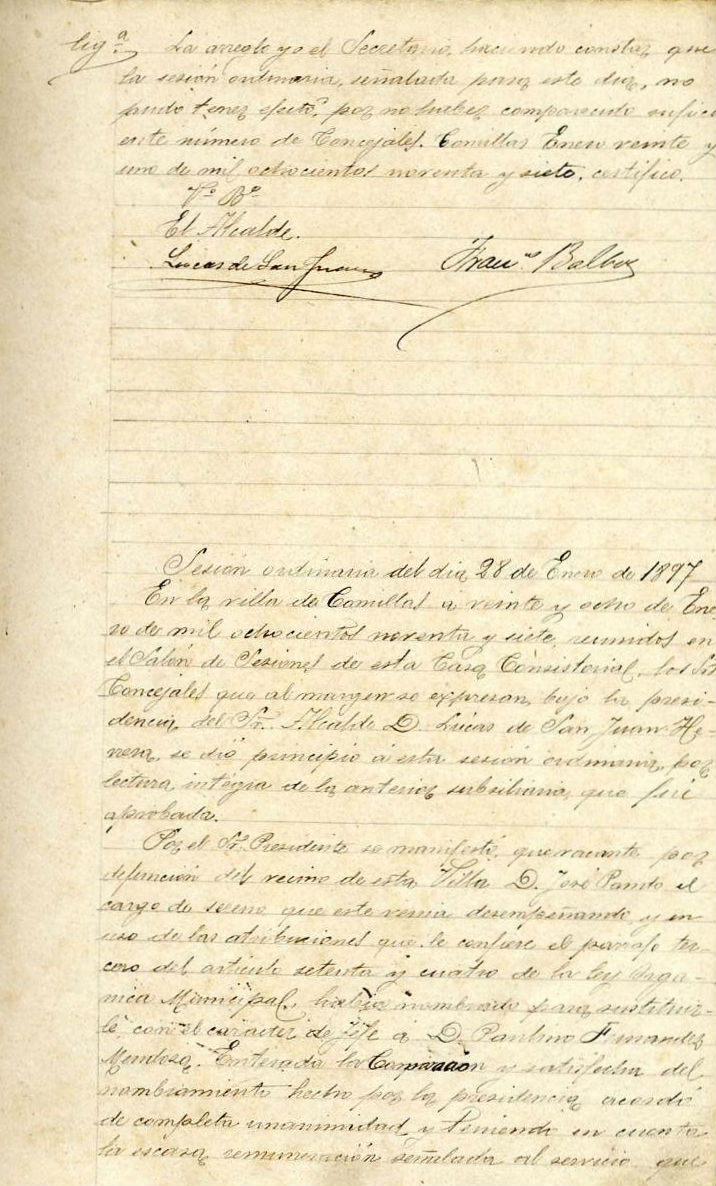 Lig.ª La arreglo yo el Secretario, haciendo constar que
la sesión ordinaria, señalada para este dia, no
pudo tener efecto, por no haber comparecido sufici
ente número de Concejales. Comillas Enero veinte y
uno de mil ochocientos noventa y siete, certifico.
Vº Bº
El Alcalde.
Lucas de San Juan Franᶜᵒ Balboz
Sesión ordinaria del dia 28 de Enero de 1897
En la villa de Comillas a veinte y ocho de Ene
ro de mil ochocientos noventa y siete, reunidos en
el Salón de Sesiones de esta Casa Consistorial, los Srs
Concejales que al margen se expresan, bajo la presi-
dencia del Sr. Alcalde D. Lucas de San Juan He-
rrera, se dió principio á esta sesión ordinaria, por
lectura integra de la anterior subsiliaria, que fué
aprobada.
Por el Sr. Presidente se manifestó, que vacante por
defunción del vecino de esta Villa D. José Pando el
cargo de sereno que este venia desempeñando, y en
uso de las atribuciones que le confiere el parrafo ter-
cero del articulo setenta y cuatro de la ley Orga-
nica Municipal, habia nombrado para sustituir-
le, con el caracter de jefe á D. Paulino Fernandez
Mendoza. Enterada la Corporación y satisfecha del
nombramiento hecho por la presidencia, acordó
de completa unanimidad y teniendo en cuenta
la escasa remuneración señalada al servicio que